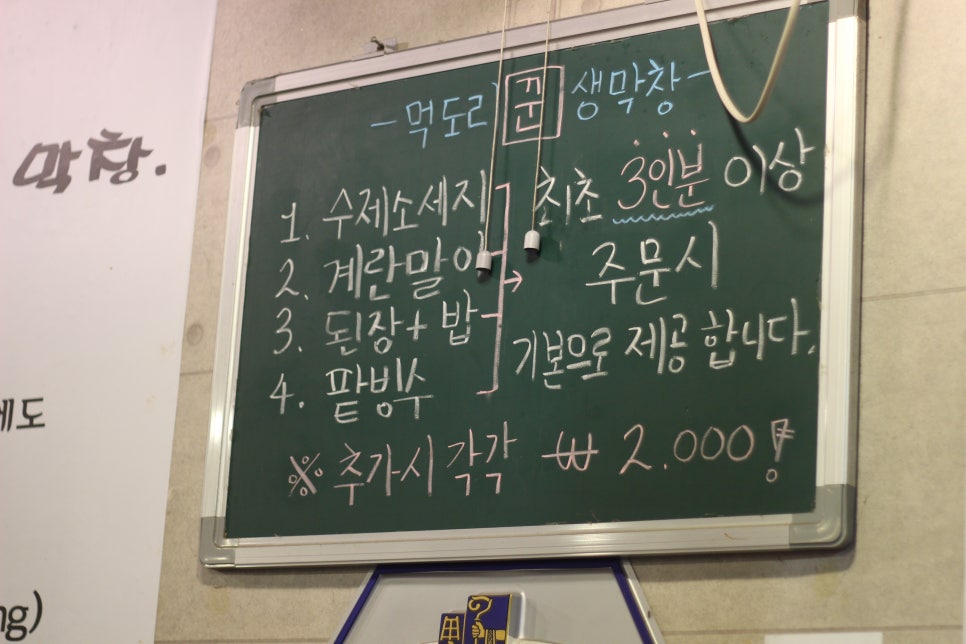 막창.
에도
ng)
-먹도리 꾼 생막창-
1. 수제소세지
2. 계란말이
3. 된장+밥
4. 팥빙수
최초 3인분 이상
주문시
기본으로 제공합니다.
※ 추가시 각각 ₩ 2.000!